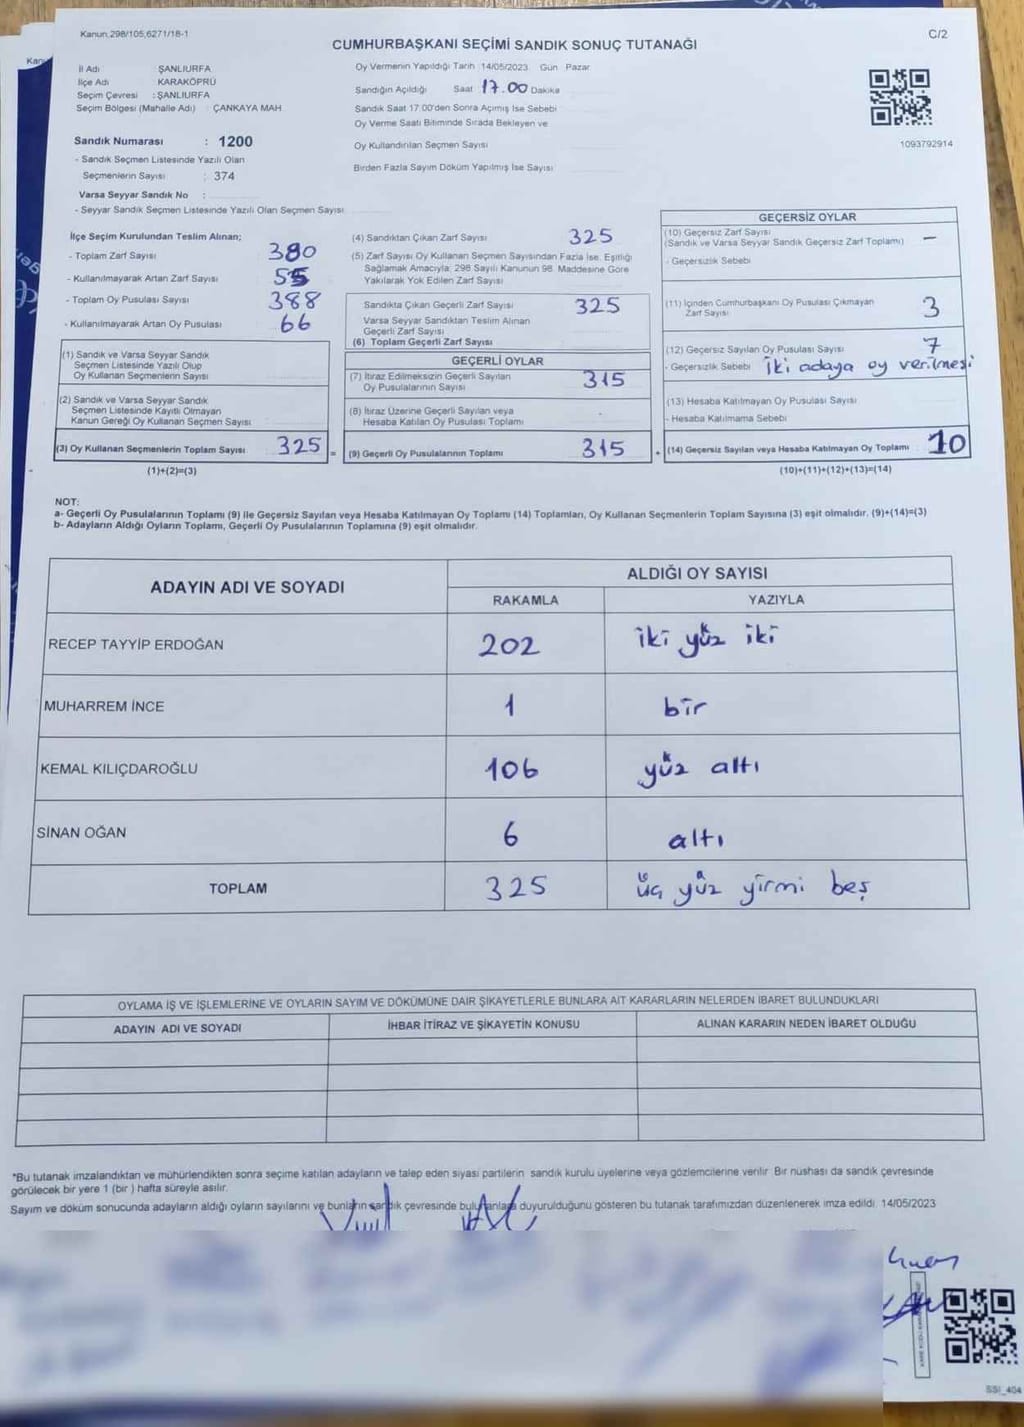 Kanun,298/105,6271/18-1
C/2
CUMHURBAŞKANI SEÇİMİ SANDIK SONUÇ TUTANAĞI
İl Adı ŞANLIURFA
İlçe Adı KARAKÖPRÜ
Seçim Çevresi : ŞANLIURFA
Seçim Bölgesi (Mahalle Adı) : ÇANKAYA MAH
Oy Vermenin Yapıldığı Tarih :14/05/2023 Gün Pazar
Sandığın Açıldığı Saat 17.00 Dakika
Sandık Saat 17.00'den Sonra Açımış İse Sebebi
Oy Verme Saati Bitiminde Sırada Bekleyen ve
Oy Kullandırılan Seçmen Sayısı
Birden Fazla Sayım Döküm Yapılmış İse Sayısı
1093792914
Sandık Numarası : 1200
- Sandık Seçmen Listesinde Yazılı Olan
Seçmenlerin Sayısı : 374
Varsa Seyyar Sandık No :
- Seyyar Sandık Seçmen Listesinde Yazılı Olan Seçmen Sayısı
İlçe Seçim Kurulundan Teslim Alınan;
- Toplam Zarf Sayısı 380
- Kullanılmayarak Artan Zarf Sayısı 55
- Toplam Oy Pusulası Sayısı 388
- Kullanılmayarak Artan Oy Pusulası 66
(1) Sandık ve Varsa Seyyar Sandık
Seçmen Listesinde Yazılı Olup
Oy Kullanan Seçmenlerin Sayısı
(2) Sandık ve Varsa Seyyar Sandık
Seçmen Listesinde Kayıtlı Olmayan
Kanun Gereği Oy Kullanan Seçmen Sayısı
(3) Oy Kullanan Seçmenlerin Toplam Sayısı 325 =
(1)+(2)=(3)
(4) Sandıktan Çıkan Zarf Sayısı 325
(5) Zarf Sayısı Oy Kullanan Seçmen Sayısından Fazla İse, Eşitliği
Sağlamak Amacıyla; 298 Sayılı Kanunun 98. Maddesine Göre
Yakılarak Yok Edilen Zarf Sayısı
Sandıkta Çıkan Geçerli Zarf Sayısı 325
Varsa Seyyar Sandıktan Teslim Alınan
Geçerli Zarf Sayısı
(6) Toplam Geçerli Zarf Sayısı
GEÇERLİ OYLAR
(7) İtiraz Edilmeksizin Geçerli Sayılan
Oy Pusulalarının Sayısı 315
(8) İtiraz Üzerine Geçerli Sayılan veya
Hesaba Katılan Oy Pusulası Toplamı
(9) Geçerli Oy Pusulalarının Toplamı 315 +
GEÇERSİZ OYLAR
(10) Geçersiz Zarf Sayısı
(Sandık ve Varsa Seyyar Sandık Geçersiz Zarf Toplamı) –
- Geçersizlik Sebebi
(11) İçinden Cumhurbaşkanı Oy Pusulası Çıkmayan
Zarf Sayısı 3
(12) Geçersiz Sayılan Oy Pusulası Sayısı 7
- Geçersizlik Sebebi iki adaya oy verilmesi
(13) Hesaba Katılmayan Oy Pusulası Sayısı
- Hesaba Katılmama Sebebi
(14) Geçersiz Sayılan veya Hesaba Katılmayan Oy Toplamı 10
(10)+(11)+(12)+(13)=(14)
NOT:
a- Geçerli Oy Pusulalarının Toplamı (9) ile Geçersiz Sayılan veya Hesaba Katılmayan Oy Toplamı (14) Toplamları, Oy Kullanan Seçmenlerin Toplam Sayısına (3) eşit olmalıdır. (9)+(14)=(3)
b- Adayların Aldığı Oyların Toplamı, Geçerli Oy Pusulalarının Toplamına (9) eşit olmalıdır.
ADAYIN ADI VE SOYADI ALDIĞI OY SAYISI
RAKAMLA YAZIYLA
RECEP TAYYİP ERDOĞAN 202 iki yüz iki
MUHARREM İNCE 1 bir
KEMAL KILIÇDAROĞLU 106 yüz altı
SİNAN OĞAN 6 altı
TOPLAM 325 üç yüz yirmi beş
OYLAMA İŞ VE İŞLEMLERİNE VE OYLARIN SAYIM VE DÖKÜMÜNE DAİR ŞİKAYETLERLE BUNLARA AİT KARARLARIN NELERDEN İBARET BULUNDUKLARI
ADAYIN ADI VE SOYADI İHBAR İTİRAZ VE ŞİKAYETİN KONUSU ALINAN KARARIN NEDEN İBARET OLDUĞU
*Bu tutanak imzalandıktan ve mühürlendikten sonra seçime katılan adayların ve talep eden siyasi partilerin sandık kurulu üyelerine veya gözlemcilerine verilir. Bir nüshası da sandık çevresinde
görülecek bir yere 1 (bir ) hafta süreyle asılır.
Sayım ve döküm sonucunda adayların aldığı oyların sayılarını ve bunların sandık çevresinde bulunanlara duyurulduğunu gösteren bu tutanak tarafımızdan düzenlenerek imza edildi. 14/05/2023
SSI_404